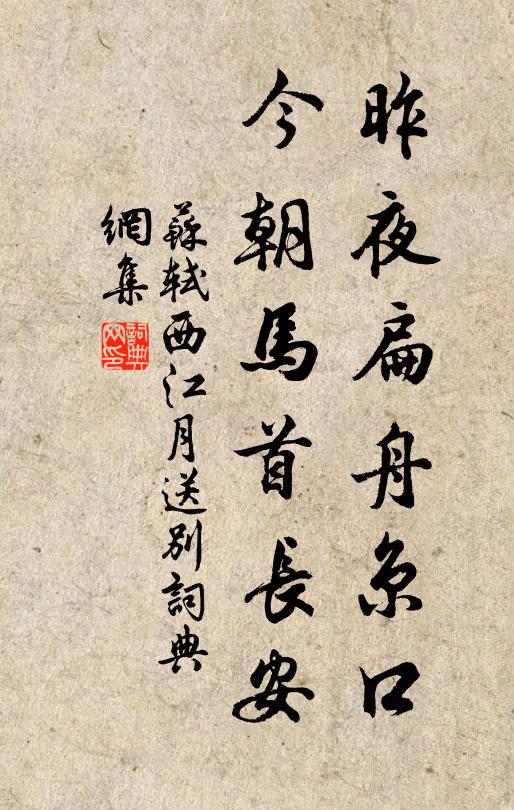 昨夜扁舟京口
今朝馬首長安
蘇軾西江月送別詞典
網集
詞典網印